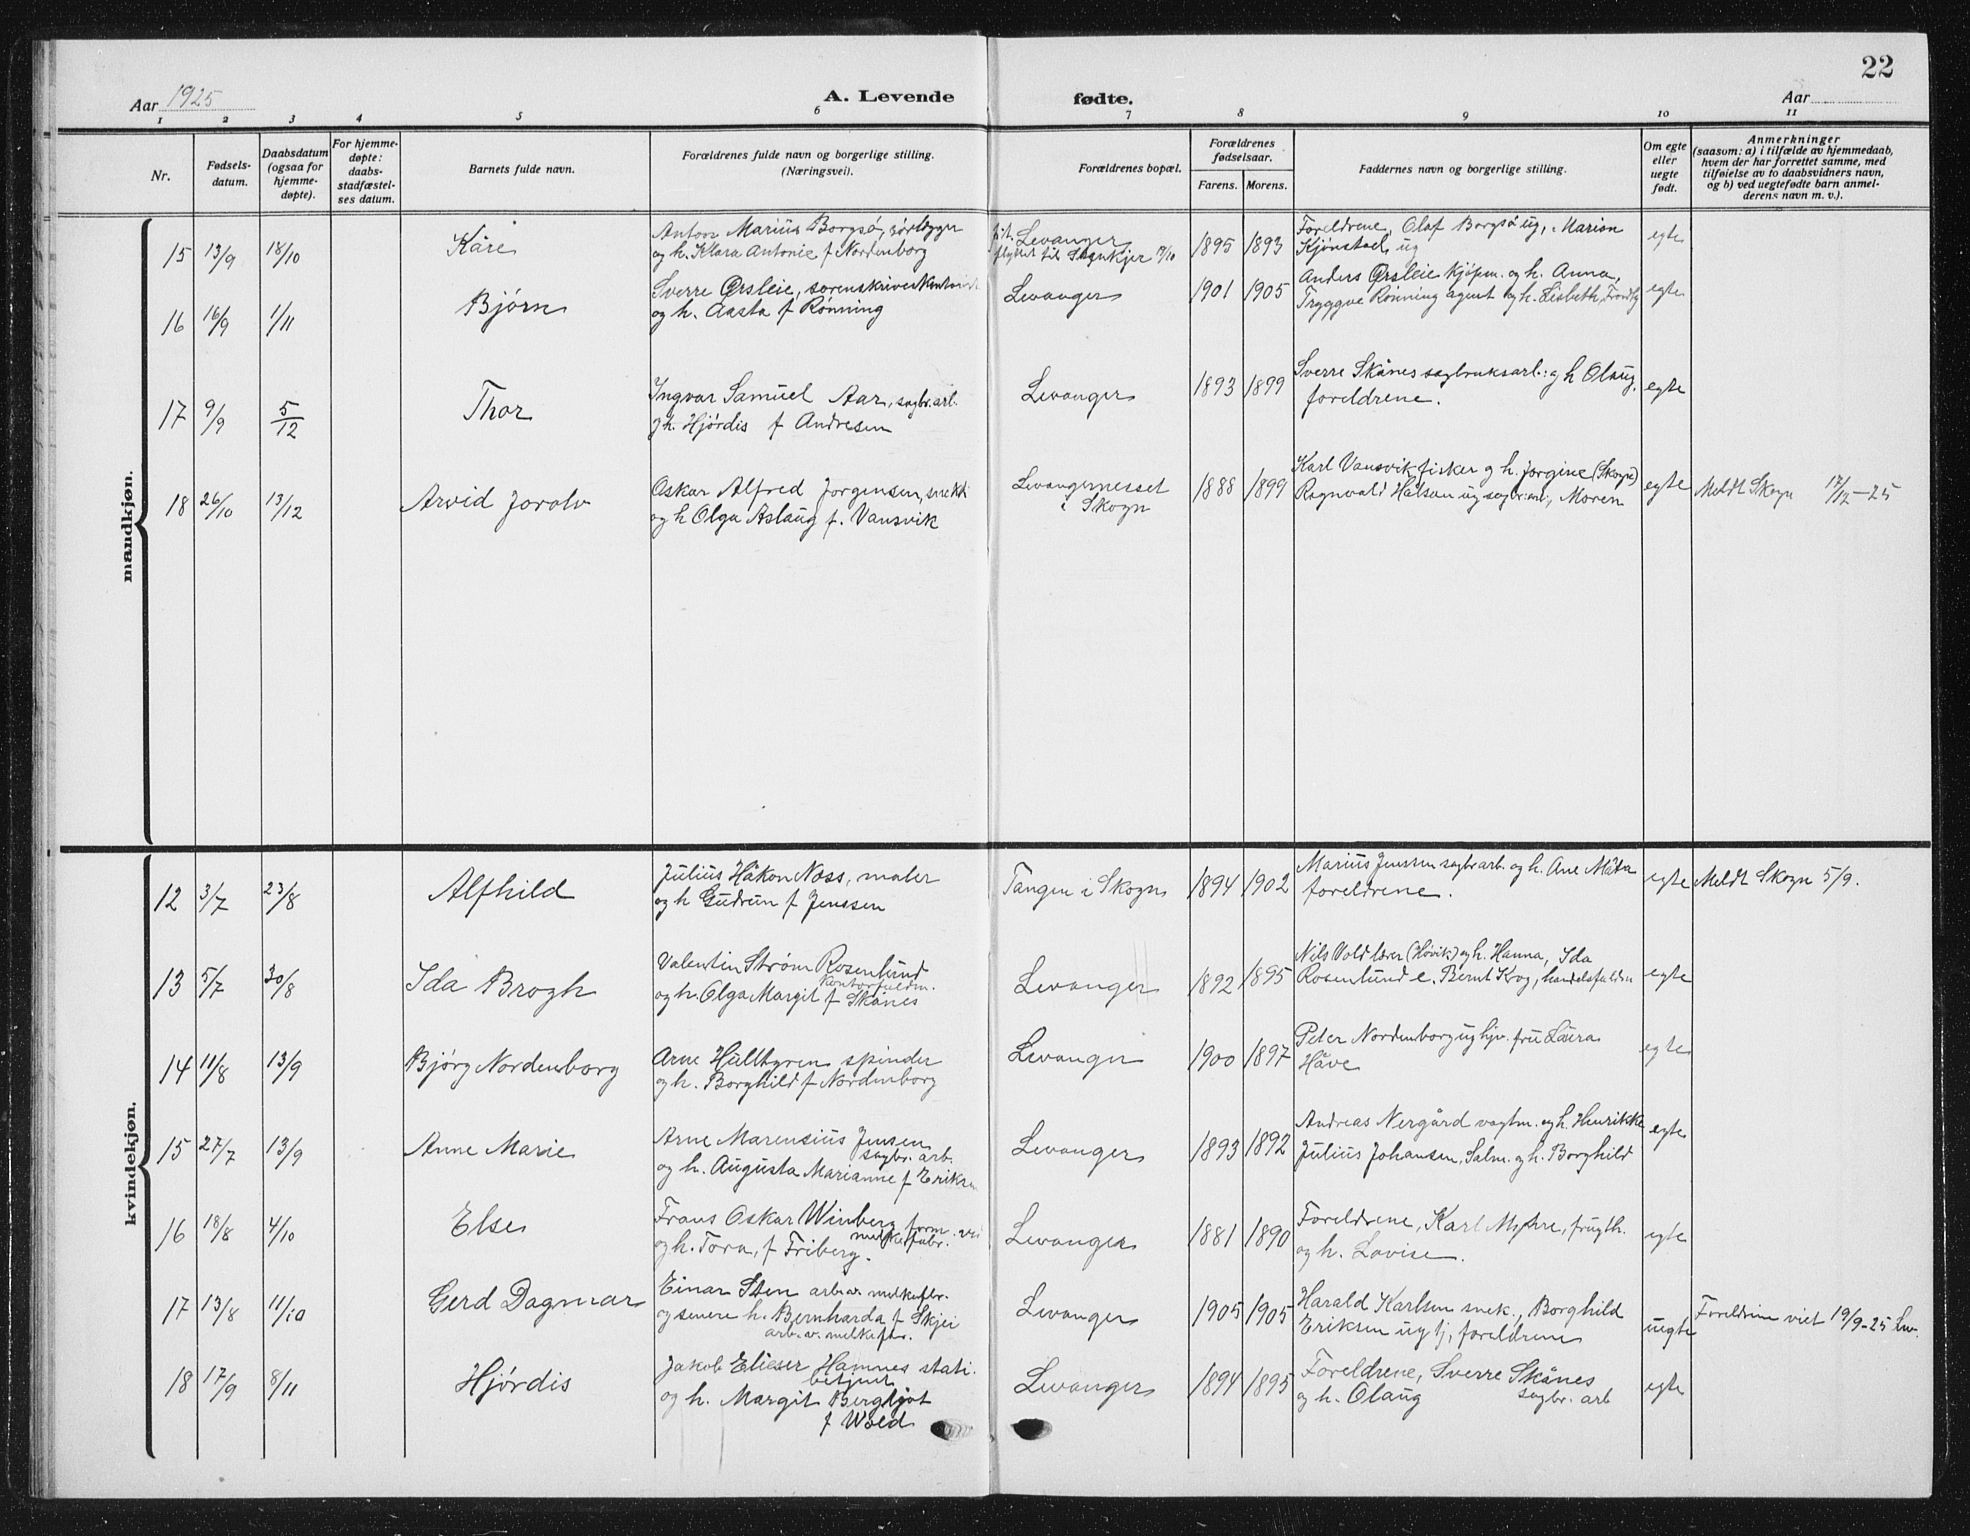 22
Aar 1925
A. Levende fødte.
Aar
1 2 3 4 5 6 7 8 9 10 11
Nr.
Fødsels-
datum.
Daabsdatum
(ogsaa for
hjemme-
døpte).
For hjemme-
døpte:
daabs-
stadfæstel-
ses datum.
Barnets fulde navn.
Forældrenes fulde navn og borgerlige stilling.
(Næringsvei).
Forældrenes bopæl.
Forældrenes
fødselsaar.
Farens. Morens.
Faddernes navn og borgerlige stilling.
Om egte
eller
uegte
født.
Anmerkninger
(saasom: a) i tilfælde av hjemmedaab,
hvem der har forrettet samme, med
tilføielse av to daabsvidners navn,
og b) ved uegtefødte barn anmel-
derens navn m. v.).
mandkjøn.
15 13/9 18/10 Kåre
Anton Marius Borgsö, rörlægger
og h. Klara Antonie f Nordenborg
Levanger
flyttet til Stenkjer
1895 1893
Foreldrene, Olaf Borgsö ug, Marion
Kjönstad ug
egte
16 16/9 1/11 Bjørn
Sverre Ørsleie, sorenskriver
og h. Aasta f Rönning
Levanger 1901 1905
Anders Ørsleie kjøpm. og h. Anna,
Tryggve Rönning agent og h. Lisbeth,
egte
17 9/9 5/12 Thor
Ingvar Samuel Aar, sagbr.arb.
og h. Hjördis f Andresen
Levanger 1893 1899
Sverre Skånes sagbruksarb: og h Olaug,
foreldrene.
egte
18 26/10 13/12 Arvid Jorolv
Oskar Alfred Jorgensen, snekk
og h Olga Aslaug f. Vansvik
Levangernesset
i Skogn
1888 1899
Karl Vansvik fisker og h. Jorgine (Skogn)
Ragnvald ug sagbr.arb., Moren
egte Meldt Skogn 17/12-25
kvindekjøn.
12 3/7 23/8 Alfhild
Julius Håkon Noss, maler
og h Gudrun f Jenssen
Tangen i Skogn 1894 1902
Marius Jenssen sagbr.arb. og h. Ane
foreldrene.
egte Meldt Skogn 5/9.
13 5/7 30/8 Ida Brogh
Valentin Strøm Rosenlund
kontorfuldm.
og h. Olga Margit f Skånes
Levanger 1892 1895
Nils Vold lærer (Høvik) og h. Hanna, Ida
Rosenlund e. Bernt Krog, handelsfuldm
egte
14 11/8 13/9 Bjørg Nordenborg
Arne Hulltgren spinder
og h. Borghild f Nordenborg
Levanger 1900 1897
Peter Nordenborg ug hjv. fru Laura
Håve
egte
15 27/7 13/9 Anne Marie
Arne Marensius Jensen
sagbr. arb.
og h. Augusta Marianne f Eriksen
Levanger 1893 1892
Andreas Nergård vagtm. og h. Henrikke
Julius Johansen, Salm. og h. Borghild
egte
16 18/8 4/10 Else
Frans Oskar Winberg form. ved
melkefabr.
og h. Tora, f Friberg.
Levanger 1881 1890
Foreldrene, Karl Myhre, frugth.
og h. Lovise.
egte
17 13/8 11/10 Gerd Dagmar
Einar Sten arb. v. melkefbr.
og senere h. Bernharda f Skjei
arb. v. melkefbr.
Levanger 1905 1905
Harald Karlsen snek., Borghild
Eriksen ug tj, foreldrene
uegte Foreldrene viet 19/9-25 Lev.
18 17/9 8/11 Hjördis
Jakob Elieser Hamnes stats.
betjent
og h. Margit Bergljot
f Wold
Levanger 1894 1895
Foreldrene, Sverre Skånes
og h. Olaug sagbr. arb
egte